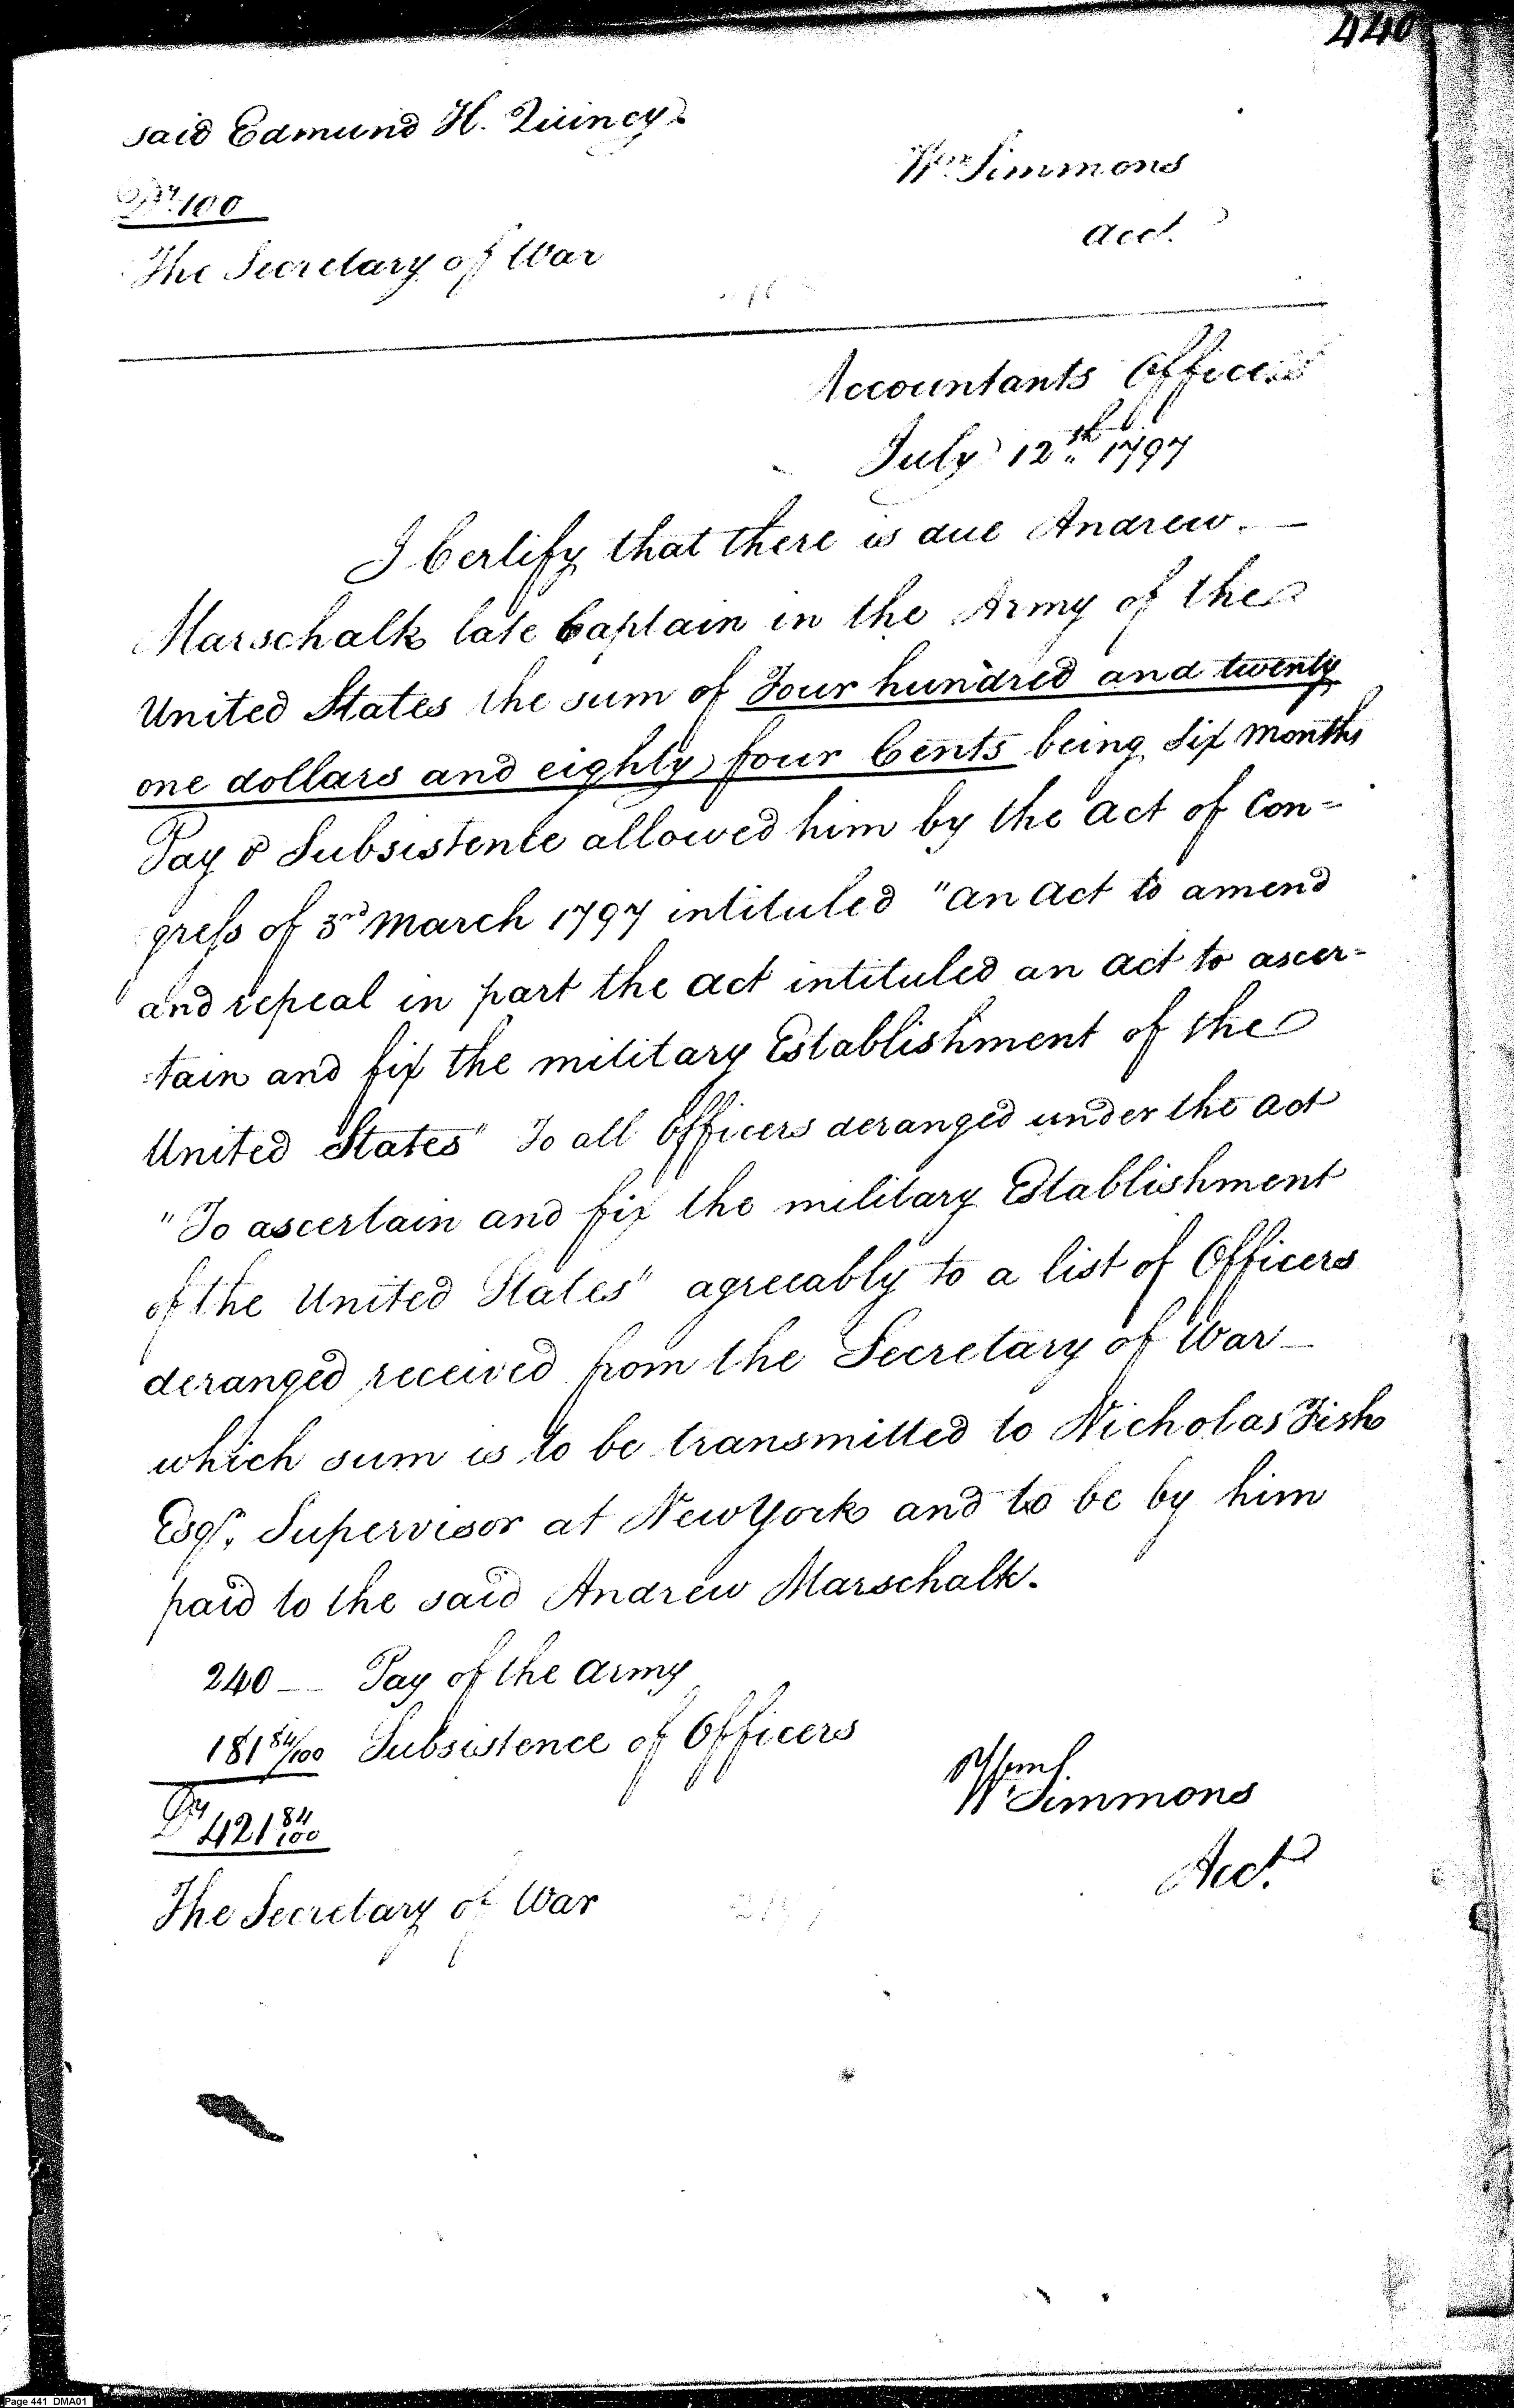 440
said Edmund H. Quincy.
Drs. 100
Wm Simmons
Acct.
The Secretary of War
Accountants Office
July 12th 1797
I Certify that there is due Andrew
Marschalk late Captain in the Army of the
United States the sum of Four hundred and twenty
one dollars and eighty four Cents being Six months
Pay & Subsistence allowed him by the act of Con=
gress of 3rd March 1797 intituled "An act to amend
and repeal in part the act intituled an act to ascer=
=tain and fix the military Establishment of the
United States" To all Officers deranged under the act
"To ascertain and fix the military Establishment
of the United States" agreeably to a list of Officers
deranged received from the Secretary of War
which sum is to be transmitted to Nicholas Fish
Esqr. Supervisor at New York and to be by him
paid to the said Andrew Marschalk.
240 — Pay of the Army
181 84/100 Subsistence of Officers
421 84/100
W Simmons
Acct.
The Secretary of War
Page 441 DMA01